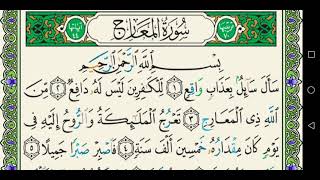 سُورَةُ الْمَعَارِجِ
بِسْمِ اللَّهِ الرَّحْمَٰنِ الرَّحِيمِ
سَأَلَ سَآئِلٌۢ بِعَذَابٍ وَاقِعٍ ١ لِّلْكَٰفِرِينَ لَيْسَ لَهُۥ دَافِعٌ ٢ مِّنَ
اللَّهِ ذِي الْمَعَارِجِ ٣ تَعْرُجُ الْمَلَٰٓئِكَةُ وَالرُّوحُ إِلَيْهِ فِي
يَوْمٍ كَانَ مِقْدَارُهُۥ خَمْسِينَ أَلْفَ سَنَةٍ ٤ فَاصْبِرْ صَبْرًا جَمِيلًا ٥